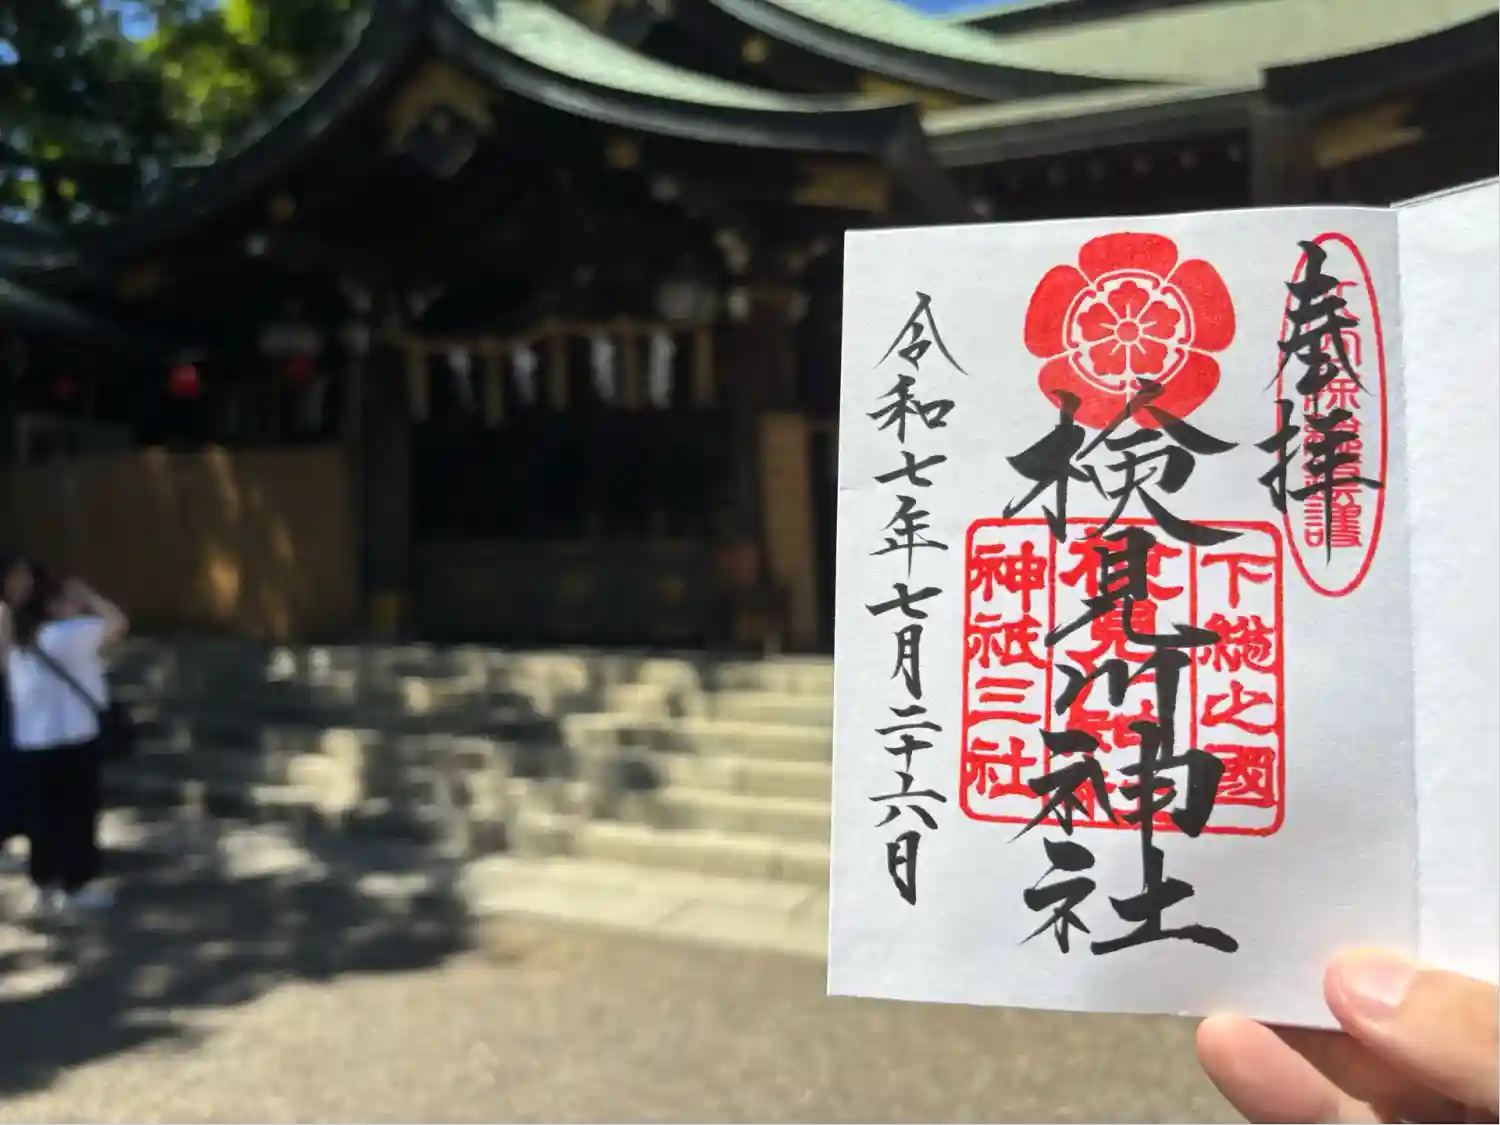 奉拝
下総之國
検見川神社
神祇三社
令和七年七月二十六日